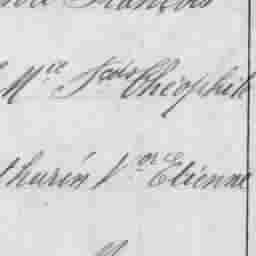 François
Mie Fcois Théophile
thurin Vor Etienne